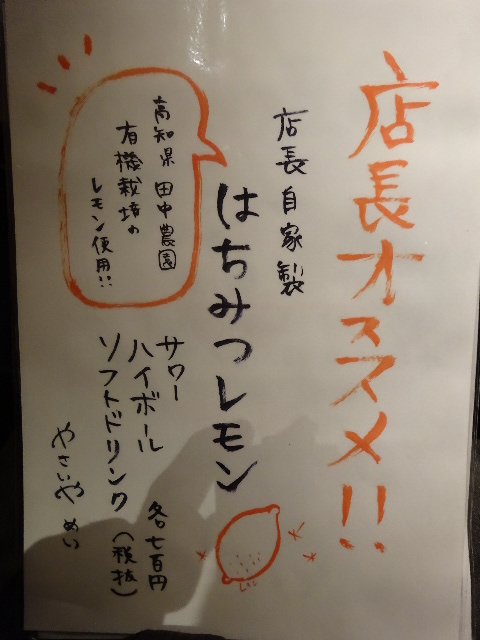 店長オススメ!!
店長自家製
はちみつレモン
高知県田中農園
有機栽培の
レモン使用!!
サワー
ハイボール
ソフトドリンク
各七百円
(税抜)
やさいや めい